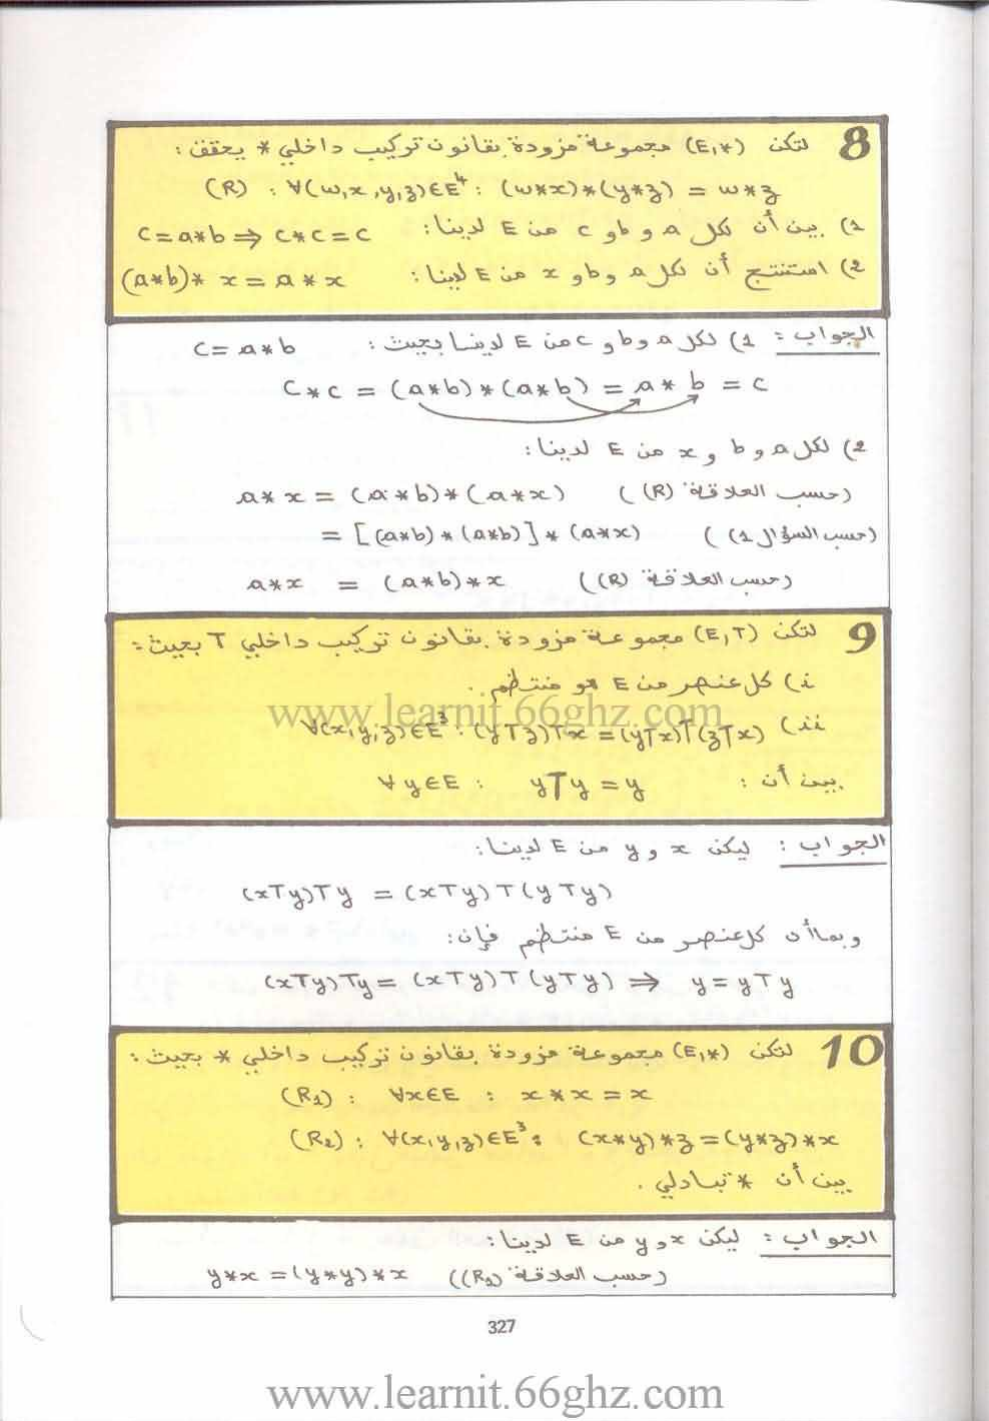 8 لتكن (E,*) مجموعة مزودة بقانون تركيب داخلي * يحقق :
(R) : ∀(w,x,y,z)∈E⁴ : (w*x)*(y*z) = w*z
1) بين أن لكل a و b و c من E لدينا : c=a*b ⇒ c*c=c
2) استنتج أن لكل a و b و x من E لدينا : (a*b)*x=a*x
الجواب : 1) لكل a و b و c من E لدينا بحيث : c=a*b
c*c = (a*b)*(a*b) = a*b = c
2) لكل a و b و x من E لدينا :
a*x = (a*b)*(a*x) (حسب العلاقة (R))
= [(a*b)*(a*b)]*(a*x) (حسب السؤال 1))
a*x = (a*b)*x (حسب العلاقة (R))
9 لتكن (E,T) مجموعة مزودة بقانون تركيب داخلي T بحيث :
i) كل عنصر من E هو منتظم .
www.learnit.66ghz.com
ii) ∀(x,y,z)∈E³ : (yTz)Tx=(yTx)T(zTx)
بين أن : ∀y∈E : yTy=y
الجواب : ليكن x و y من E لدينا :
(xTy)Ty = (xTy)T(yTy)
وبما أن كل عنصر من E منتظم فإن :
(xTy)Ty = (xTy)T(yTy) ⇒ y=yTy
10 لتكن (E,*) مجموعة مزودة بقانون تركيب داخلي * بحيث :
(R₁) : ∀x∈E : x*x=x
(R₂) : ∀(x,y,z)∈E³ : (x*y)*z=(y*z)*x
بين أن * تبادلي .
الجواب : ليكن x و y من E لدينا :
y*x = (y*y)*x (حسب العلاقة (R₁))
327
www.learnit.66ghz.com